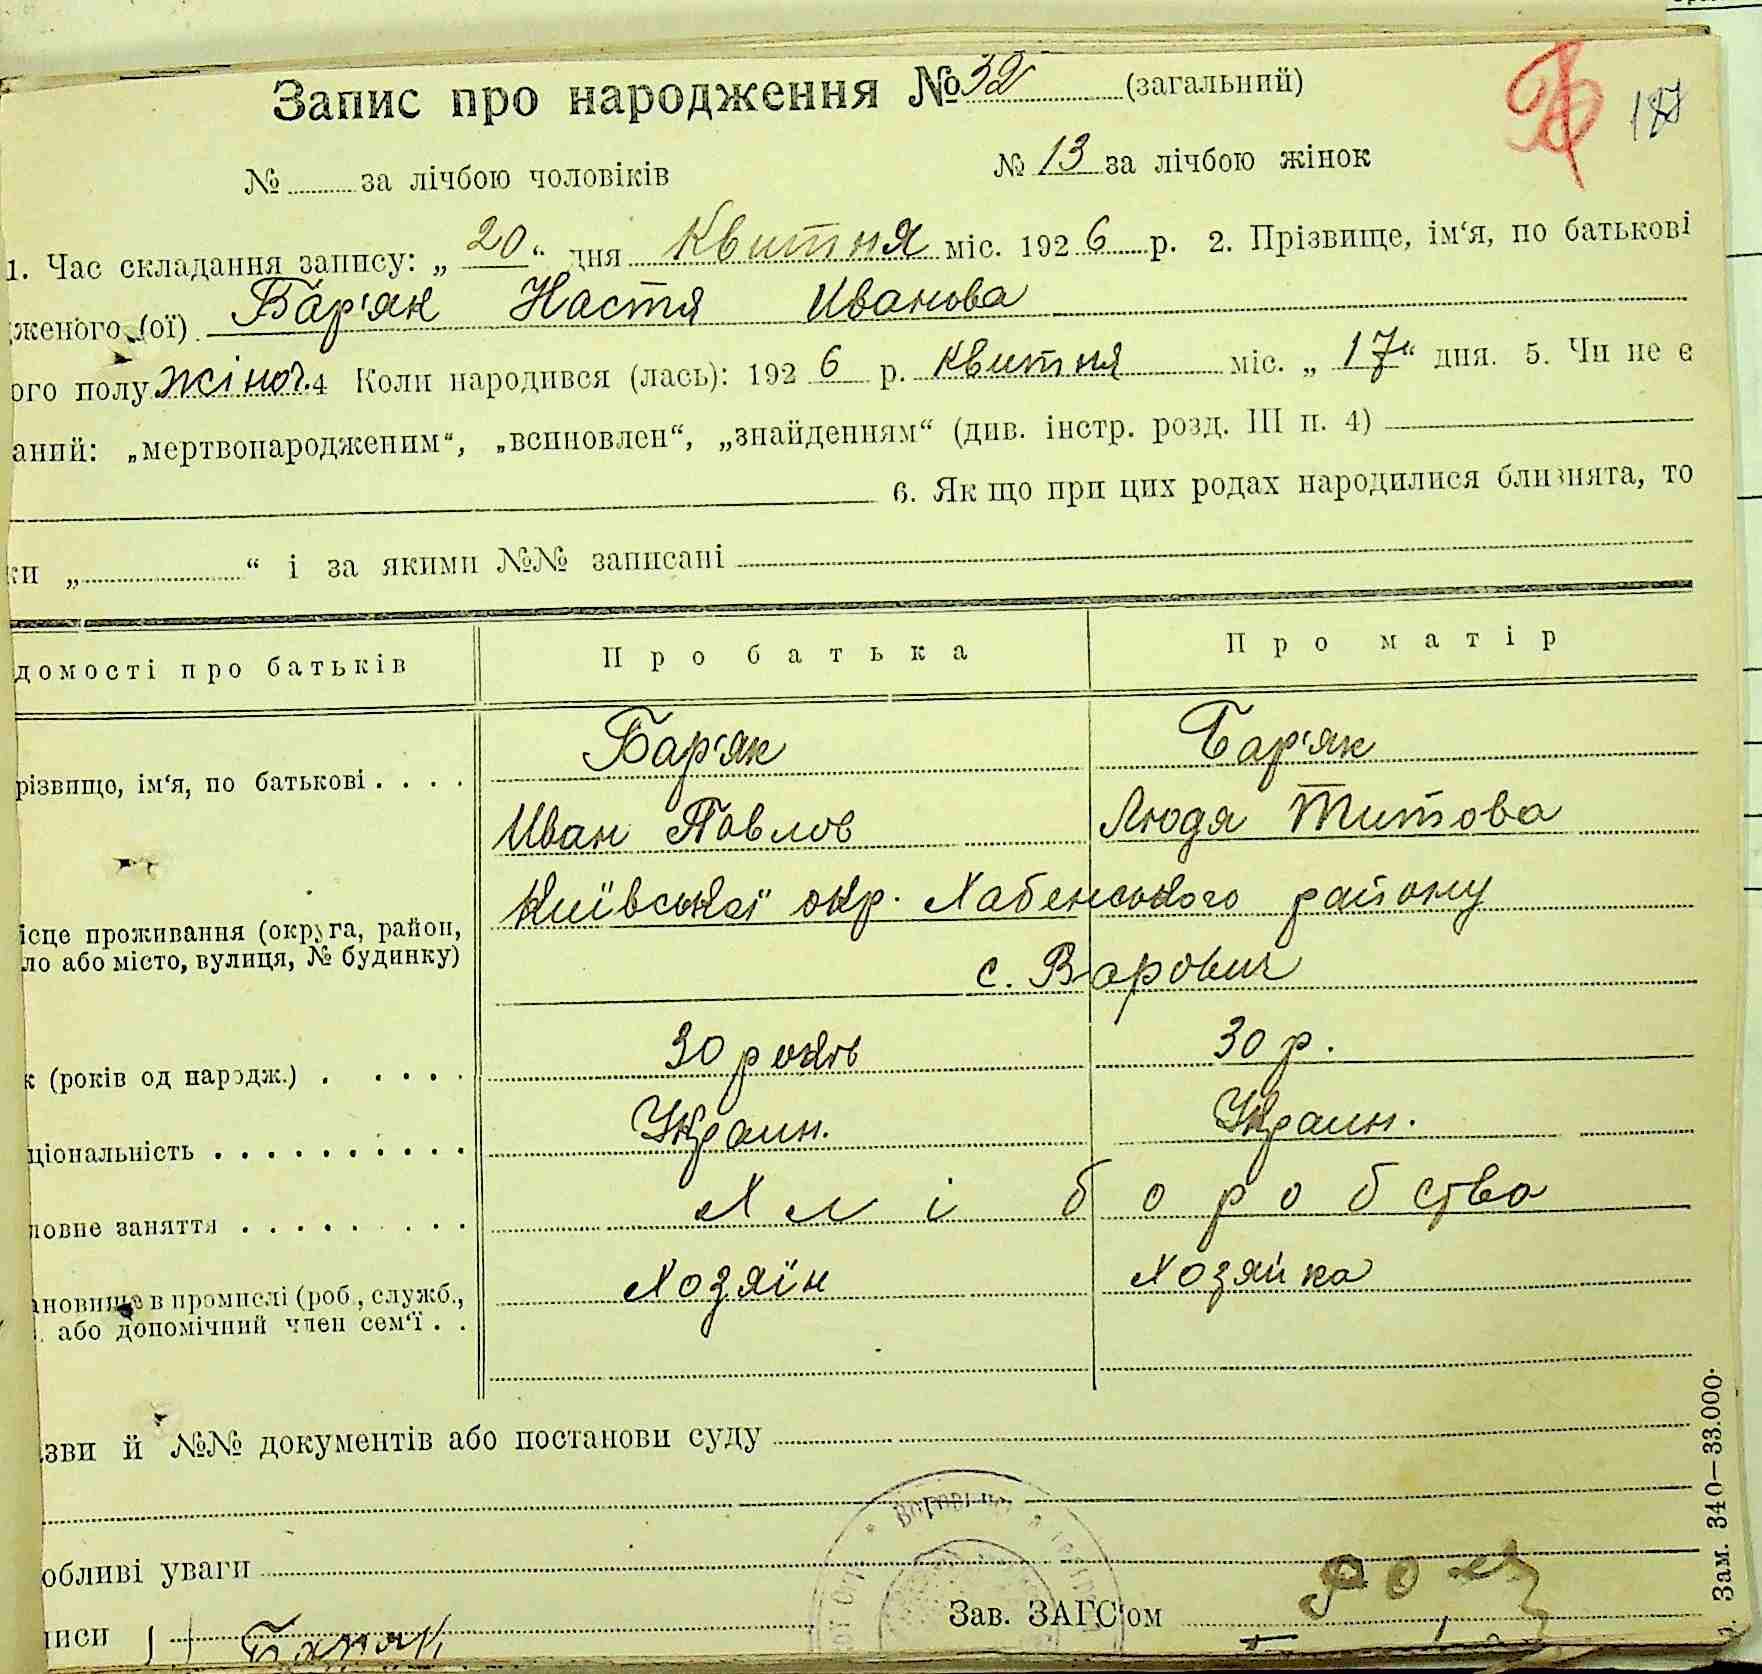 Запис про народження № 32 (загальний)
№ за лічбою чоловіків № 13 за лічбою жінок
1. Час складання запису: „20“ дня Квитня міс. 1926 р. 2. Прізвище, ім‘я, по батькові
женого (ої) Бар'як Настя Иванова
ого полу жіноч. 4 Коли народився (лась): 1926 р. Квитня міс. „17“ дня. 5. Чи не є
аний: „мертвонародженим“, „всиновлен“, „знайденням“ (див. інстр. розд. III п. 4)
6. Як що при цих родах народилися близнята, то
ки „ “ і за якими №№ записані
домості про батьків Про батька Про матір
різвище, ім‘я, по батькові . . . . Бар'як Бар'як
Иван Павлов Людя Титова
Київської окр. Хабенського району
ісце проживання (округа, район,
ло або місто, вулиця, № будинку)
с. Варович
к (років од народж.) . . . . . 30 років 30 р.
ціональність . . . . . . . . . . Украин. Украин.
ловне заняття . . . . . . . . . Хліборобство
ановище в промислі (роб., служб., Хозяїн Хозяйка
або допомічний член сем‘ї . .
зви й №№ документів або постанови суду
обливі уваги
Зав. ЗАГС'ом
иси
Зам. 340—33.000.